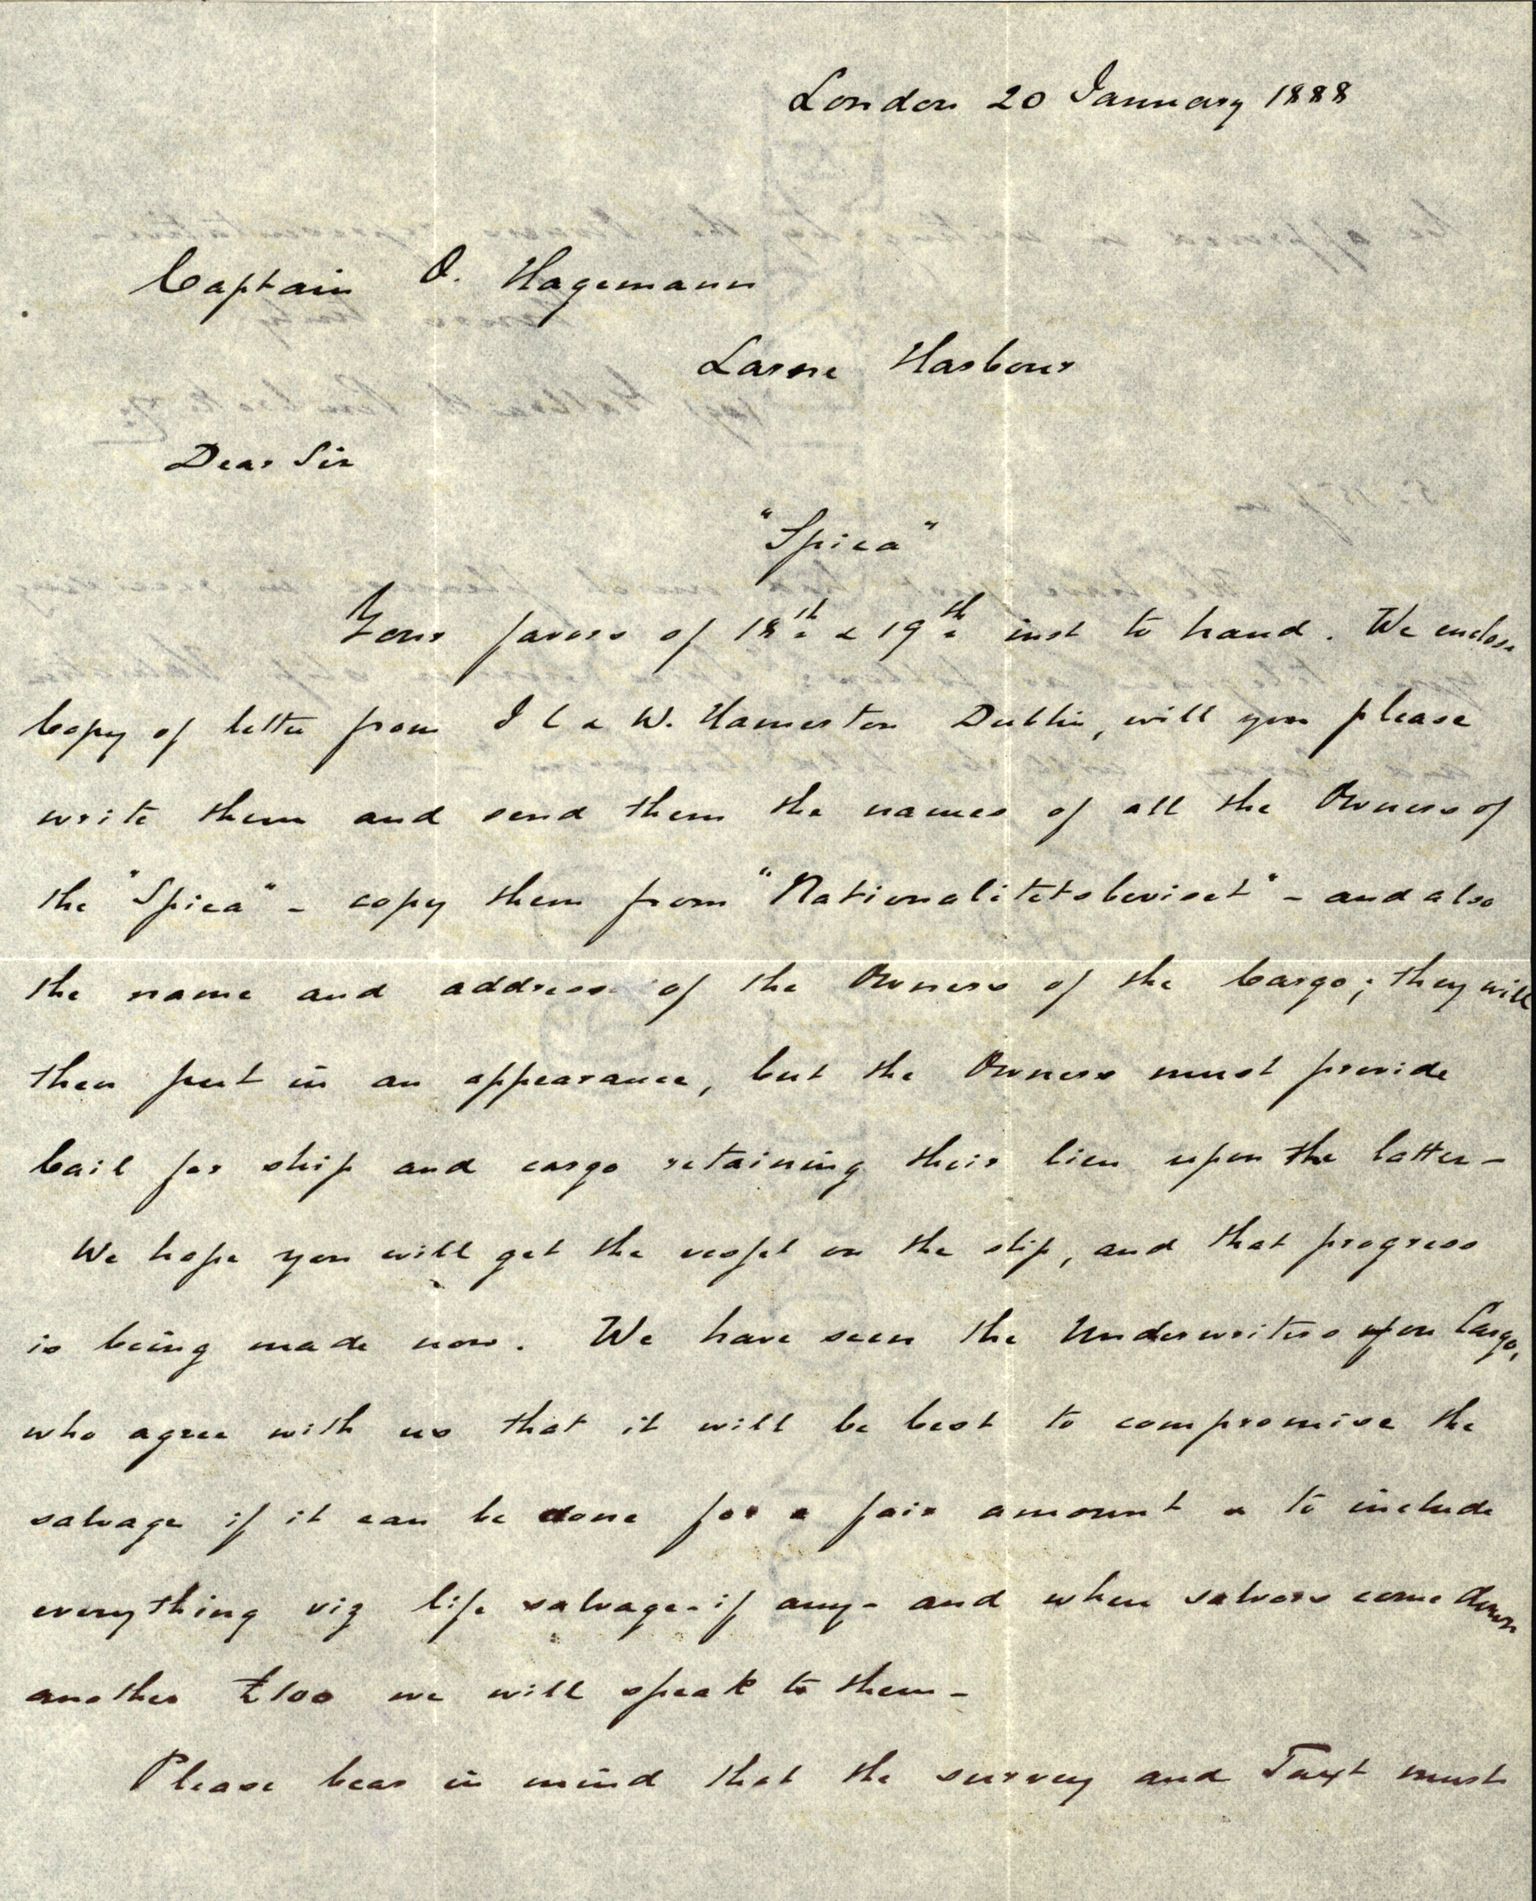 London 20 January 1888
Captain O. Hagemann
Larne Harbour
Dear Sir
"Spica"
Your favors of 18th & 19th inst to hand. We enclose
Copy of letter from I L & W. Hamerton Dublin, will you please
write them and send them the names of all the Owners of
the "Spica" - copy them from "Nationalitetsbeviset" - and also
the name and address of the Owners of the Cargo; they will
then put in an appearance, but the Owners must provide
bail for ship and cargo retaining their lien upon the latter -
We hope you will get the vessel on the slip, and that progress
is being made now. We have seen the Underwriters upon Cargo,
who agree with us that it will be best to compromise the
salvage if it can be done for a fair amount & to include
everything viz life salvage - if any - and when salvors come down
another £100 we will speak to them -
Please bear in mind that the survey and Taxt must